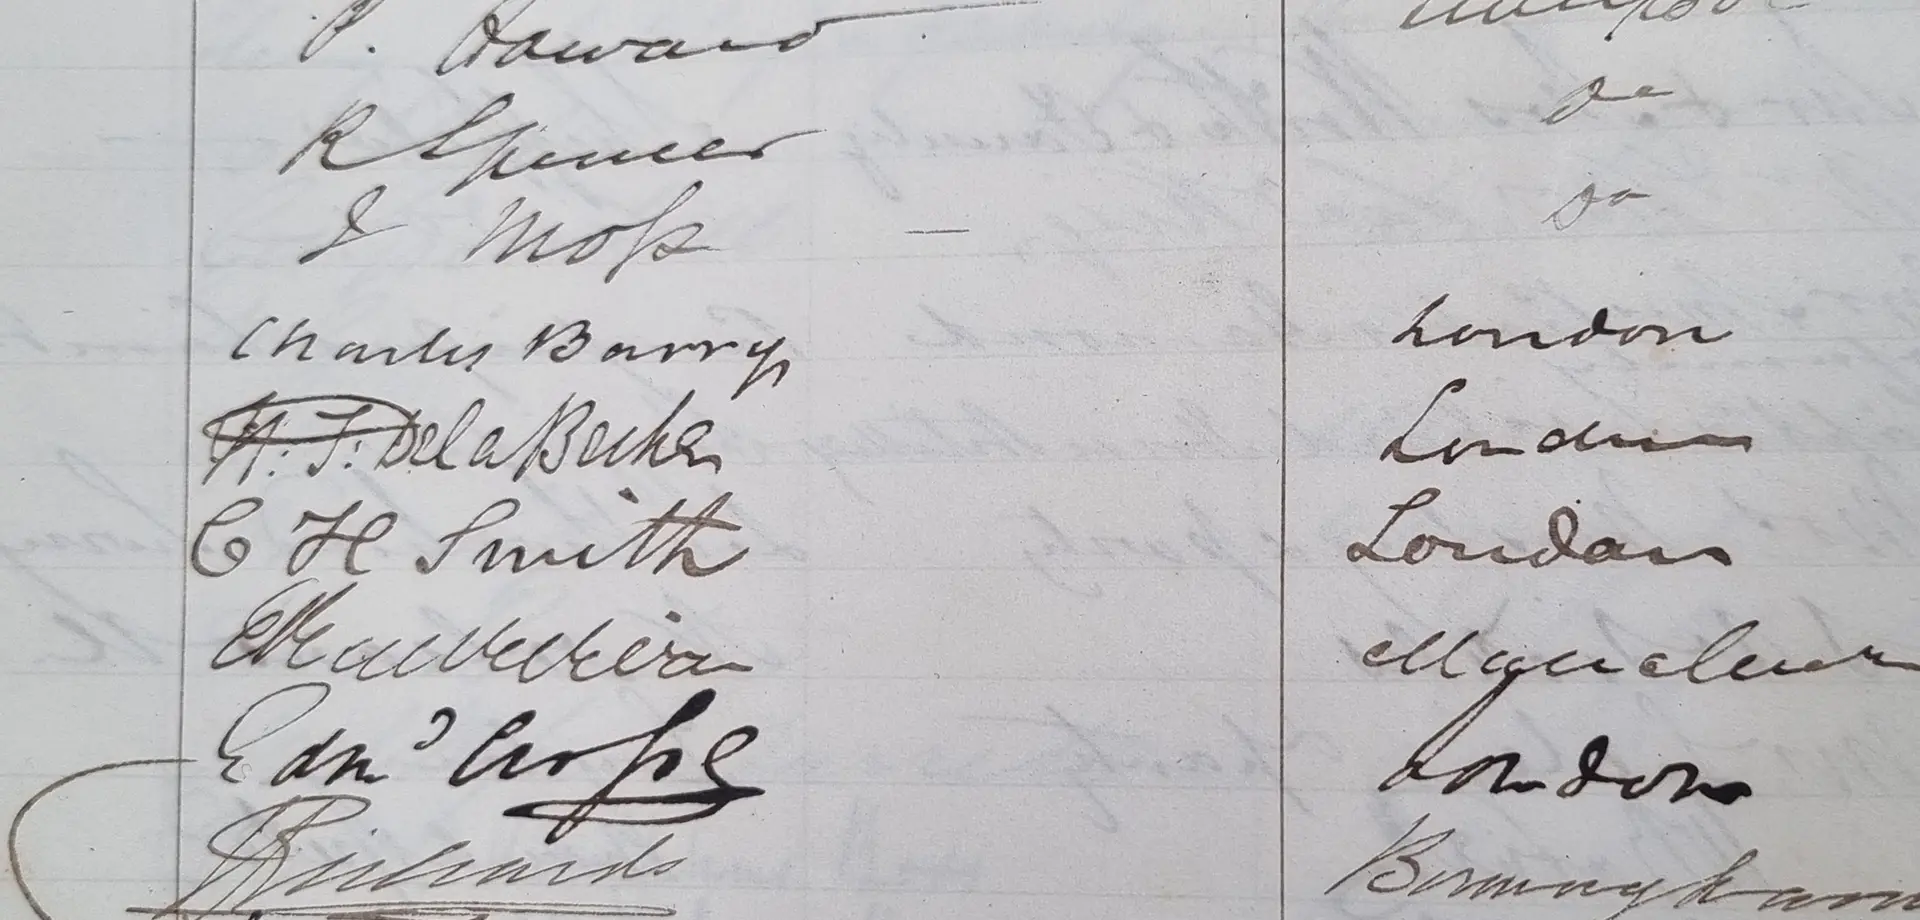 P. Howard Liverpool
R Spencer Do
I Moss Do
Charles Barry London
H. T. De la Beche London
C H Smith London
London
Edmd Crosse London
Richards Birmingham